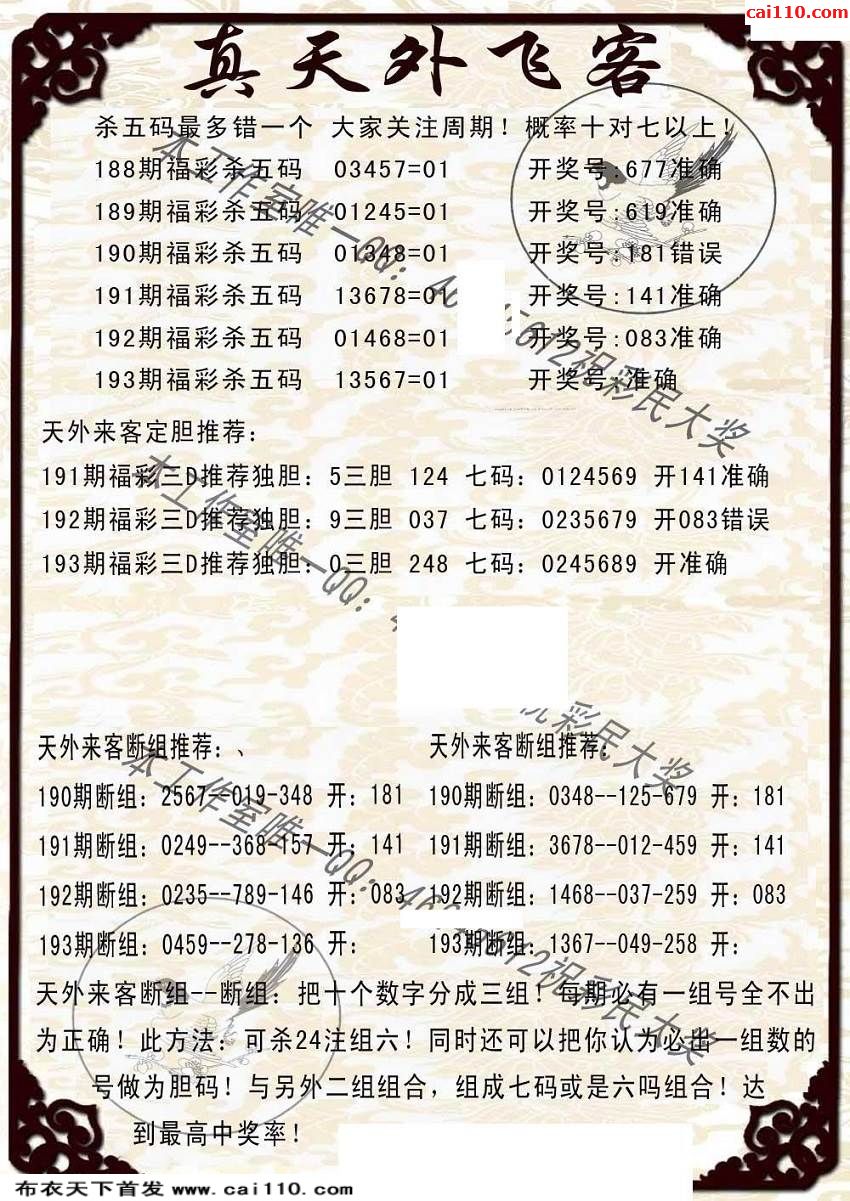 cai110.com
真天外飞客
杀五码最多错一个 大家关注周期！概率十对七以上！
188期福彩杀五码 03457=01 开奖号:677准确
189期福彩杀五码 01245=01 开奖号:619准确
190期福彩杀五码 01348=01 开奖号:181错误
191期福彩杀五码 13678=01 开奖号:141准确
192期福彩杀五码 01468=01 开奖号:083准确
193期福彩杀五码 13567=01 开奖号:准确
天外来客定胆推荐：
191期福彩三D推荐独胆：5三胆 124 七码：0124569 开141准确
192期福彩三D推荐独胆：9三胆 037 七码：0235679 开083错误
193期福彩三D推荐独胆：0三胆 248 七码：0245689 开准确
天外来客断组推荐：、 天外来客断组推荐：
190期断组：2567--019-348 开：181 190期断组：0348--125-679 开：181
191期断组：0249--368-157 开：141 191期断组：3678--012-459 开：141
192期断组：0235--789-146 开：083 192期断组：1468--037-259 开：083
193期断组：0459--278-136 开： 193期断组：1367--049-258 开：
天外来客断组--断组：把十个数字分成三组！每期必有一组号全不出
为正确！此方法：可杀24注组六！同时还可以把你认为必出一组数的
号做为胆码！与另外二组组合，组成七码或是六吗组合！达
到最高中奖率！
本工作室唯一QQ：
612祝彩民大奖
本工作室唯一QQ：
彩民大奖
本工作室唯一QQ：
612祝彩民大奖
布衣天下首发 www.cai110.com